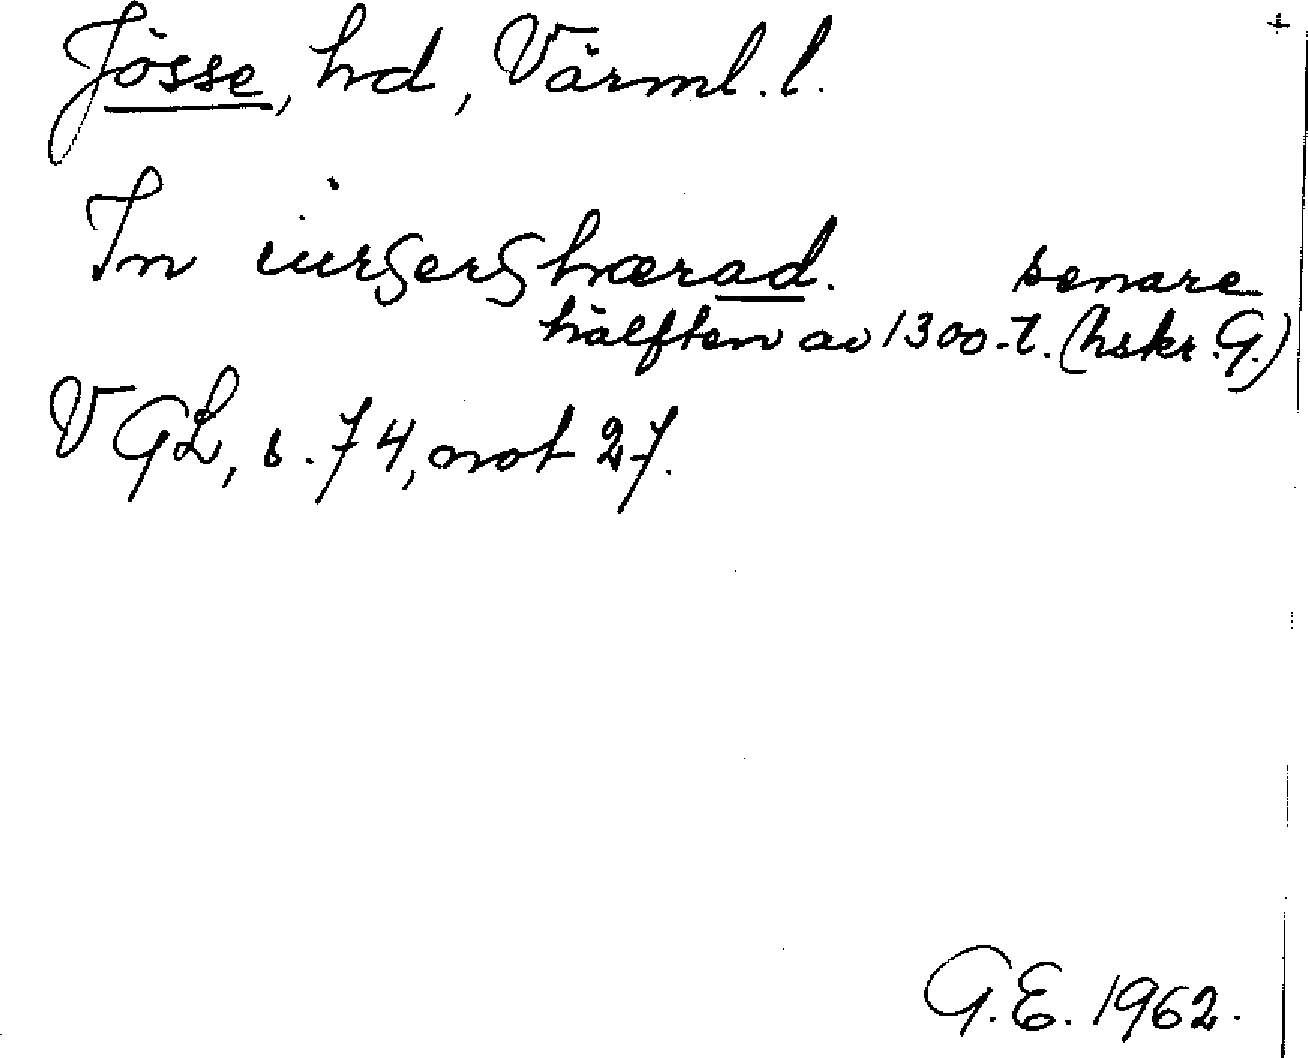 Jösse, hd, Värml. l.
In iursershærad. senare
hälften av 1300-t. (hskr. G.)
VGL, s. 74, not 27.
G.E. 1962.